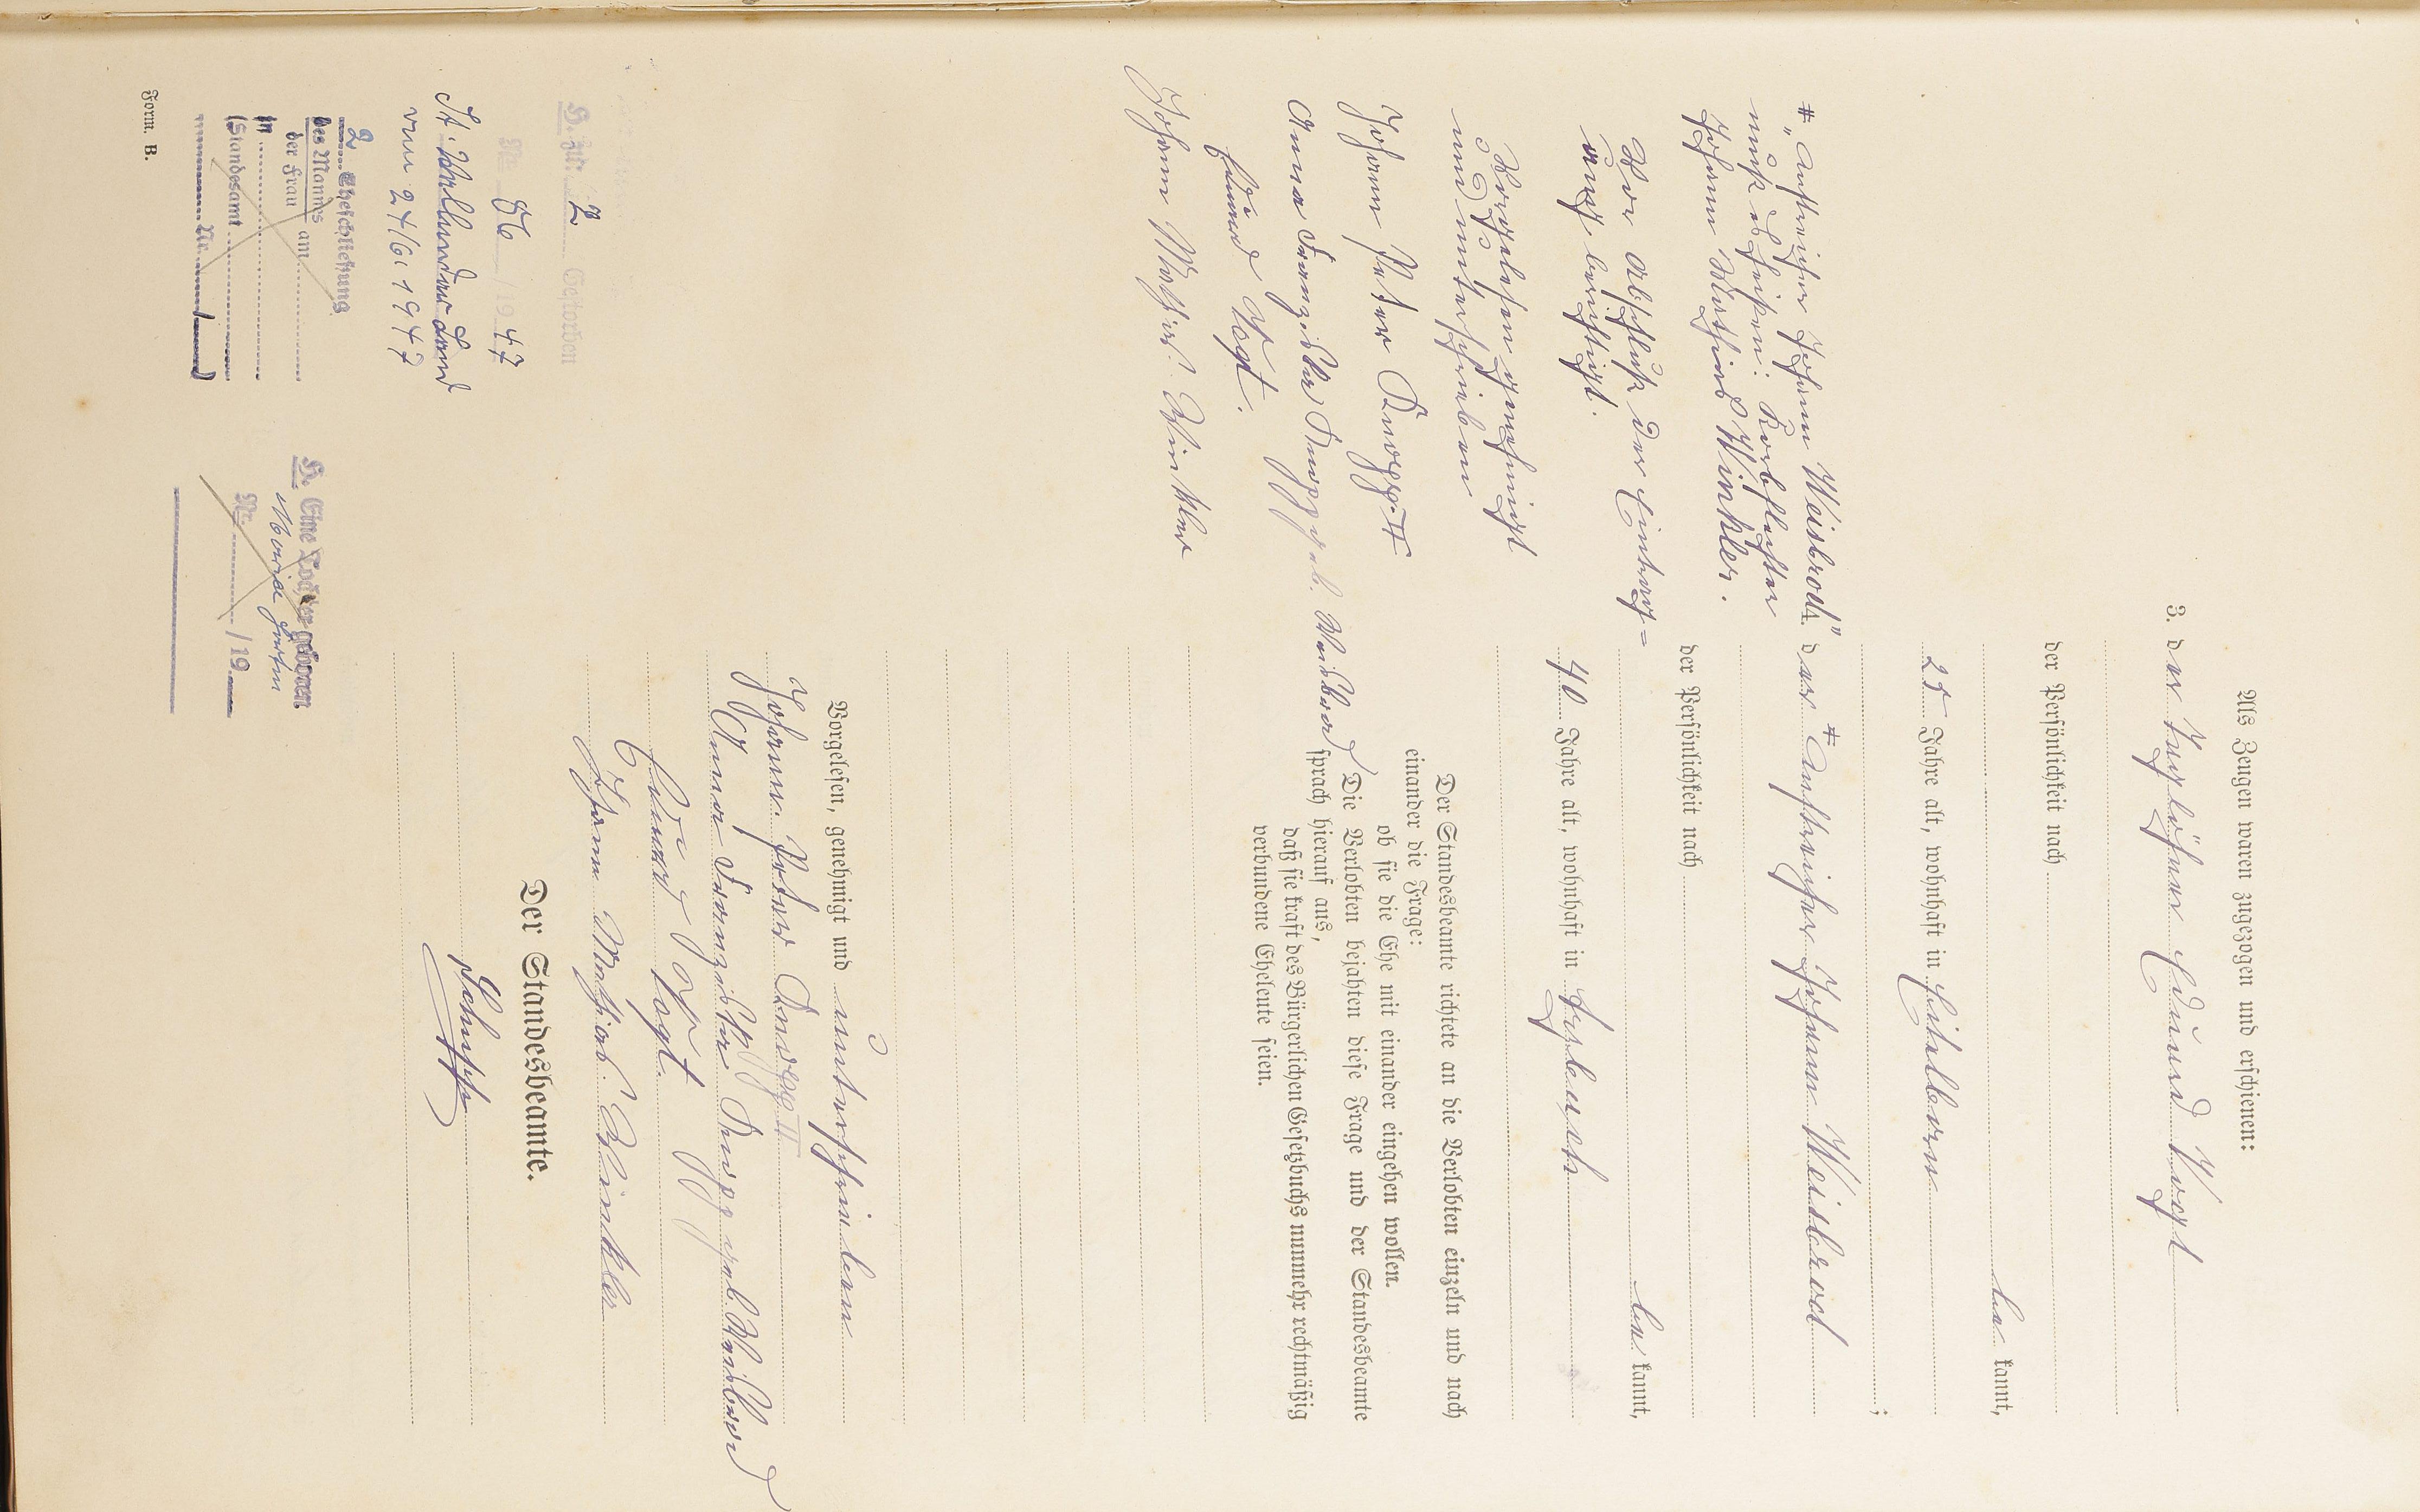 Als Zeugen waren zugezogen und erschienen:
3. der Taglöhner Eduard Vogt
der Persönlichkeit nach
be kannt,
25 Jahre alt, wohnhaft in Heilborn
;
4. der * Anstreicher Johann Weisbrod
der Persönlichkeit nach
be kannt,
40 Jahre alt, wohnhaft in
Der Standesbeamte richtete an die Verlobten einzeln und nach
einander die Frage:
ob sie die Ehe mit einander eingehen wollen.
Die Verlobten bejahten diese Frage und der Standesbeamte
sprach hierauf aus,
daß sie kraft des Bürgerlichen Gesetzbuchs nunmehr rechtmäßig
verbundene Eheleute seien.
Vorgelesen, genehmigt und unterschrieben
Johann Peter
Anna Franziska geb. Weisbrod
Eduard Vogt.
Johann Mathias
Der Standesbeamte.
* "Anstreicher Johann Weisbrod"
muß es heißen: Korbflechter
Johann Mathias Winkler.
Vor Abschluß der Eintrag=
ung berichtigt.
Vorgelesen genehmigt
und unterschrieben
Johann Peter
Anna Franziska geb. Weisbrod
Eduard Vogt.
Johann Mathias
H. zu: 2 Gestorben
Nr. 56 /19 47
St.
vom 24/6. 1947
2. Eheschließung
des Mannes
der Frau am
in
(Standesamt
Nr. )
H. Eine Tochter geboren
Nr. /19
Form. B.